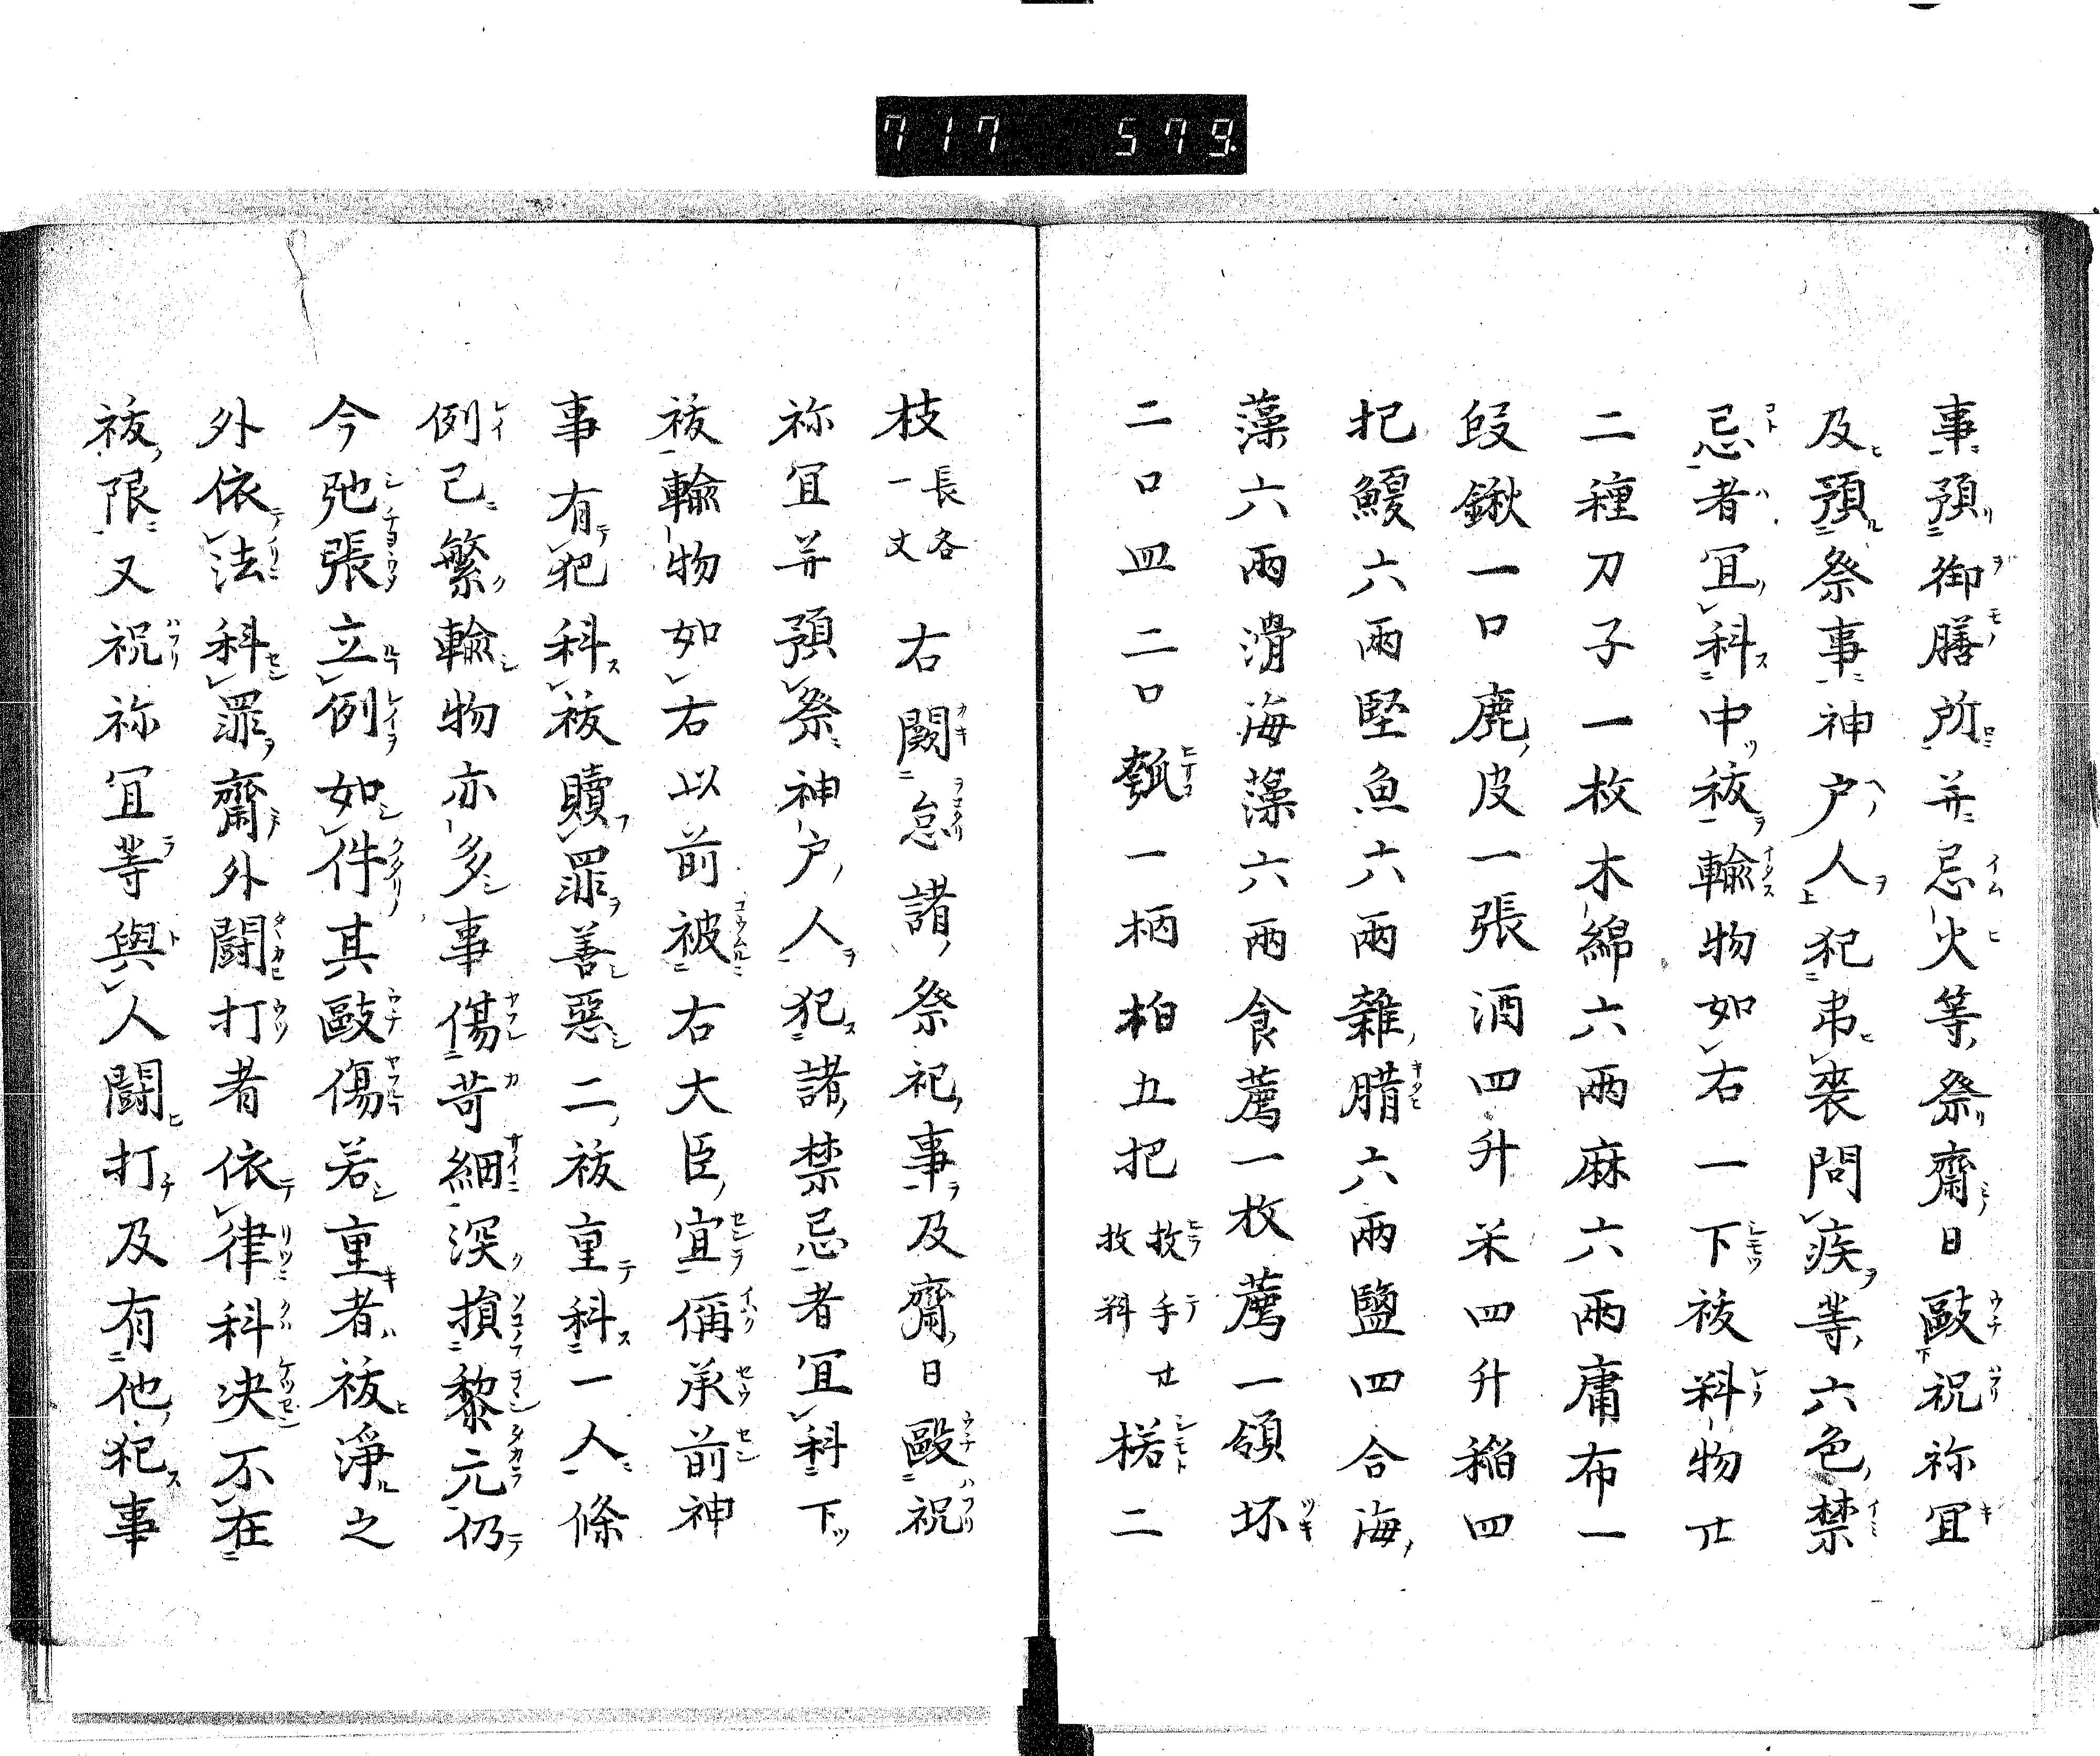 717 579
事預御膳所并忌火等祭齋日毆祝祢冝
及預祭事神戸人犯弔喪問疾等六色禁
忌者冝科中祓輸物如右一下祓料物廾
二種刀子一枚木綿六兩麻六兩庸布一
段鍬一口鹿皮一張酒四升米四升稲四
把鰒六兩堅魚六兩雜腊六兩鹽四合海
藻六兩滑海藻六兩食薦一枚薦一領坏
二口皿二口瓠一柄柏五把枚手廾枚料楉二
枝長各一丈右闕怠諸祭祀事及齋日毆祝
祢冝并預祭神戸人犯諸禁忌者冝科下
祓輸物如右以前被右大臣宣偁承前神
事有犯科祓贖罪善惡二祓重科一人條
例已繁輸物亦多事傷苛細深損黎元仍
今弛張立例如件其毆傷若重者祓淨之
外依法科罪齋外闘打者依律科决不在
祓限又祝祢冝等與人闘打及有他犯事